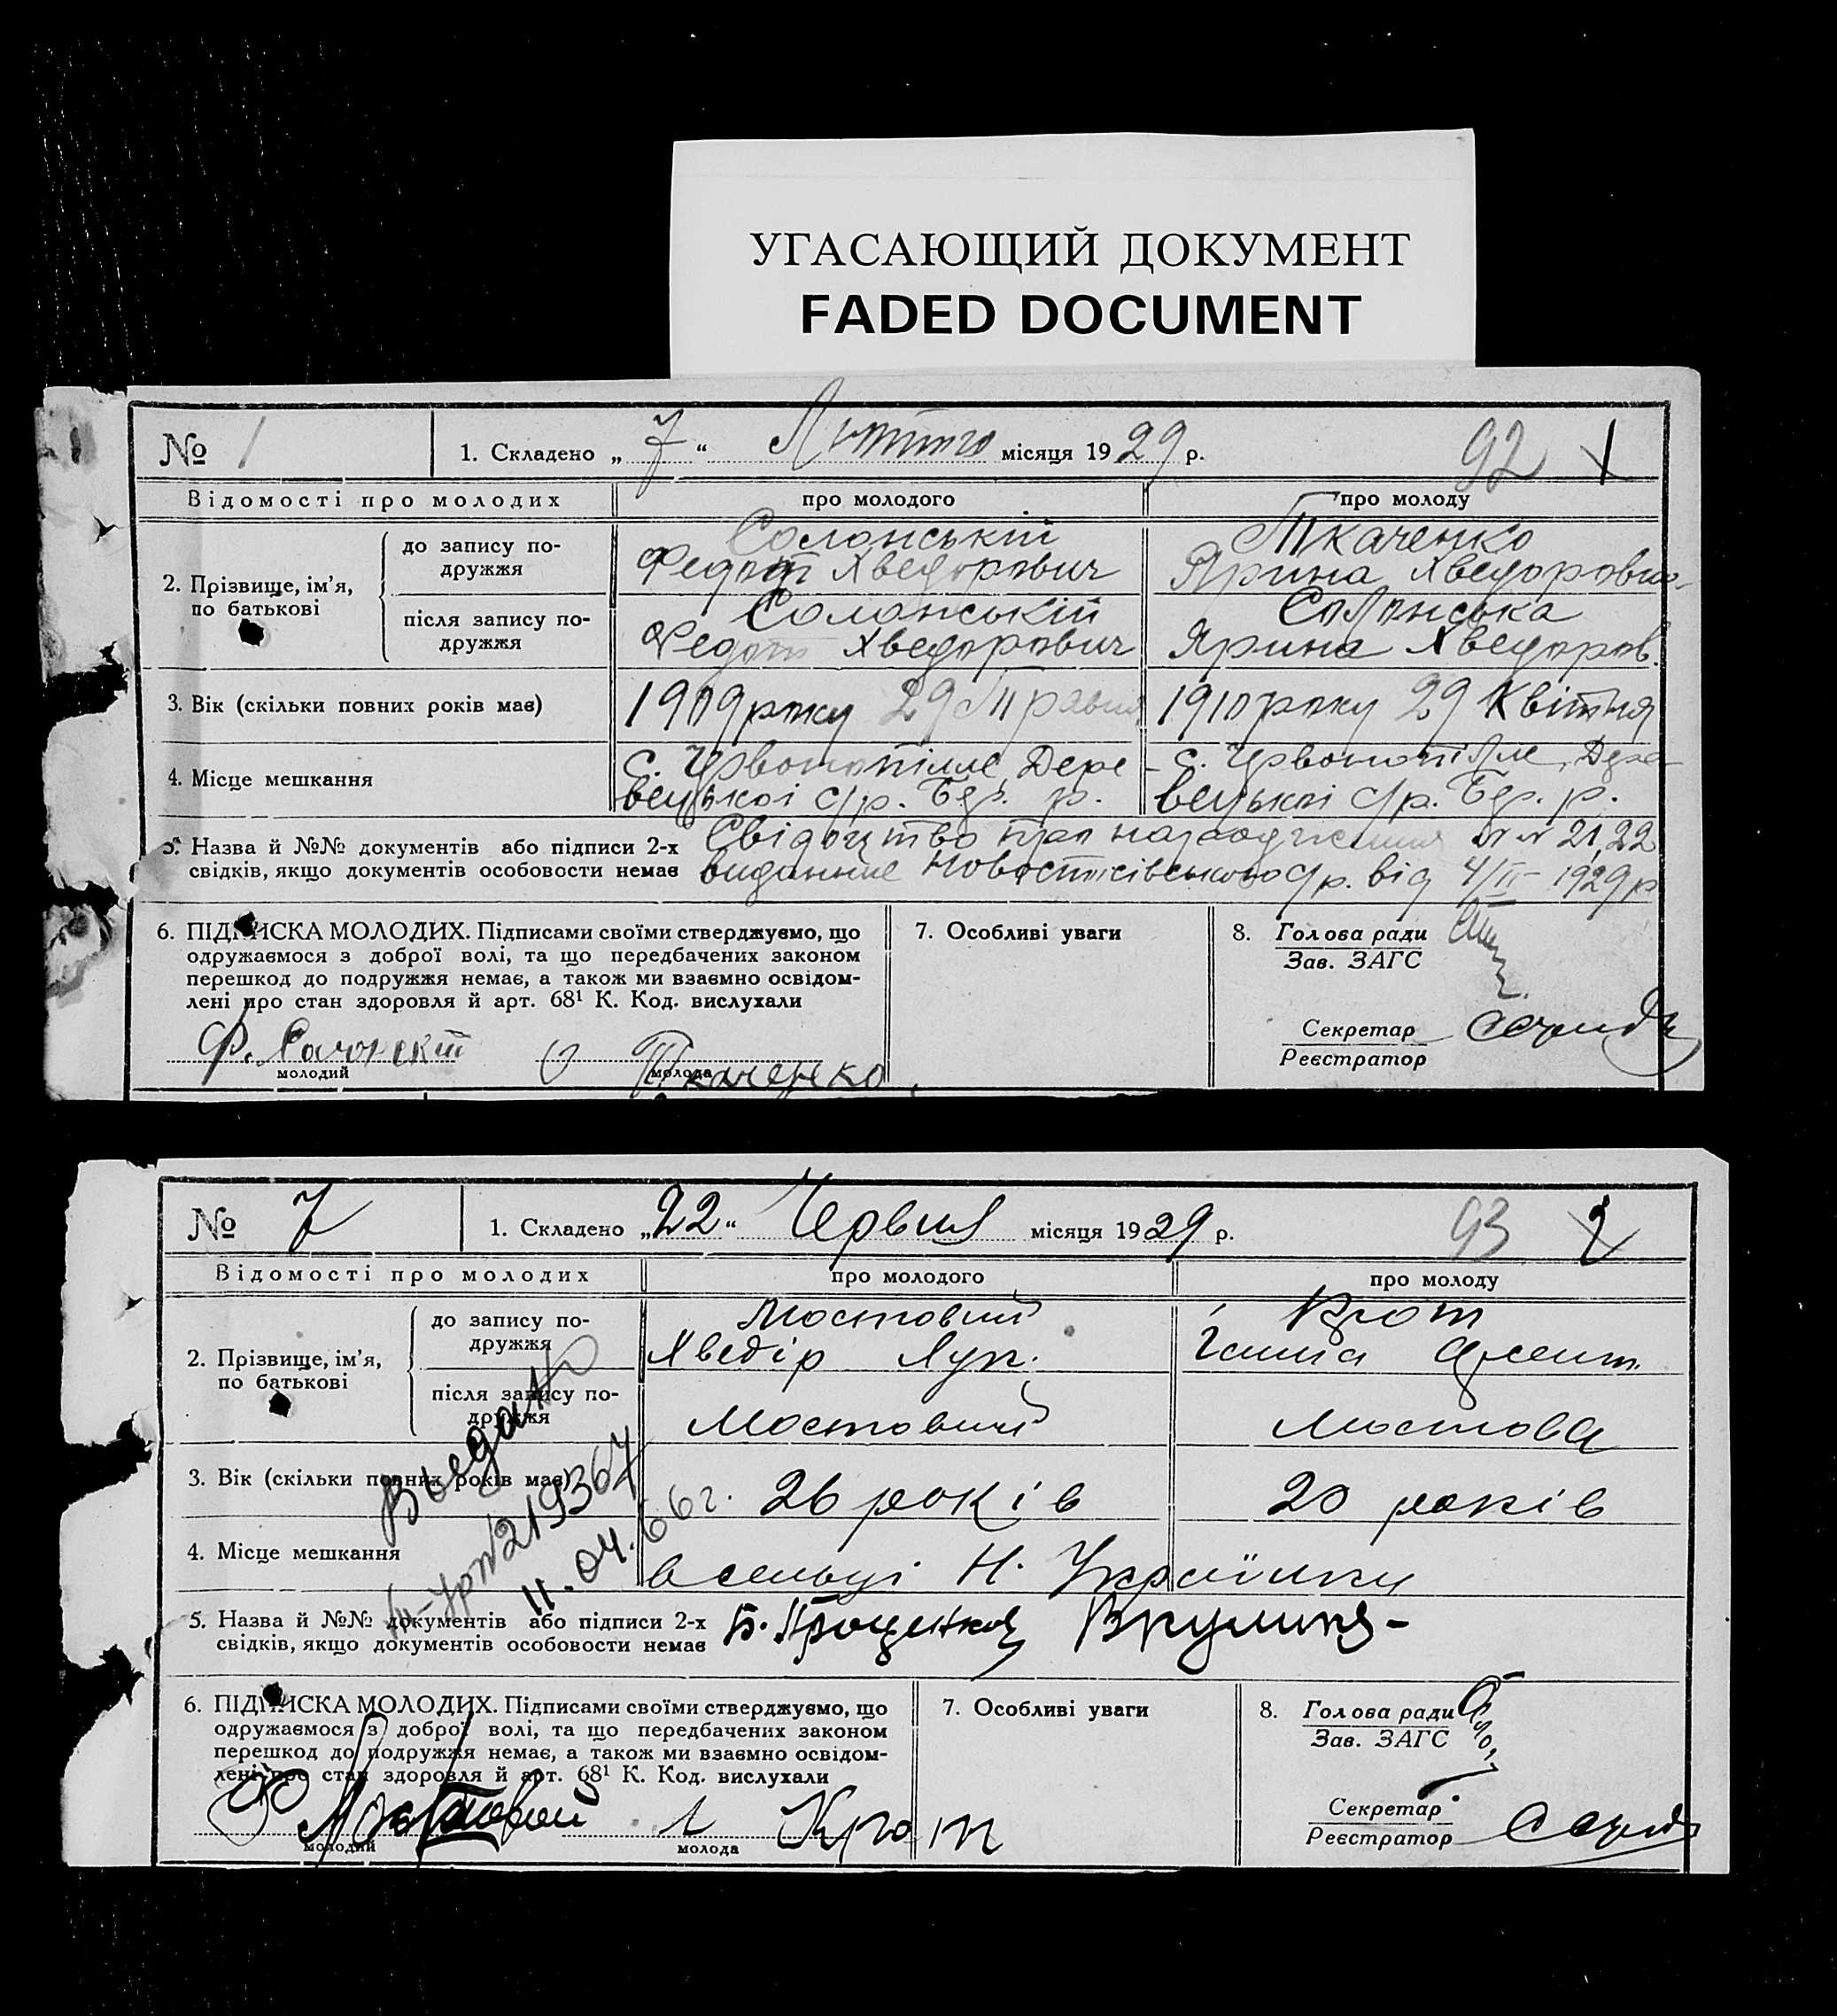 УГАСАЮЩИЙ ДОКУМЕНТ
FADED DOCUMENT
№ 1
1. Складено „ 7 “ Лютого місяця 1929 р.
92 1
Відомості про молодих
про молодого
про молоду
2. Прізвище, ім'я, по батькові
до запису подружжя
Солонській
Федот Хведорович
Ткаченко
Ярина Хведоровна
після запису подружжя
Солонській
Федот Хведорович
Солонська
Ярина Хведоров.
3. Вік (скільки повних років має)
1909 року 29 Травня
1910 року 29 Квітня
4. Місце мешкання
с. Червонопілле, Дере
вецької с/р. Бер. р.
с. Червонопілле, Дере
вецької с/р. Бер. р.
5. Назва й №№ документів або підписи 2-х
свідків, якщо документів особовости немає
Свідоцтво про народження № № 21, 22
с/р. від 4/II - 1929 р
6. ПІДПИСКА МОЛОДИХ. Підписами своїми стверджуємо, що
одружаємося з доброї волі, та що передбачених законом
перешкод до подружжя немає, а також ми взаємно освідом-
лені про стан здоровля й арт. 68¹ К. Код. вислухали
молодий
Ткаченко
молода
7. Особливі уваги
8. Голова ради
Зав. ЗАГС
Секретар
Реєстратор
№ 7
1. Складено „22“ Червня місяця 1929 р.
93 2
Відомості про молодих
про молодого
про молоду
2. Прізвище, ім'я, по батькові
до запису подружжя
Мостовий
Хведір Луп.
Крот
Ганна
після запису подружжя
Мостовий
Мостова
3. Вік (скільки повних років має)
26 років
20 років
4. Місце мешкання
в сельці Н. Українки
Выдано
№ 219367
11.04.66 г.
5. Назва й №№ документів або підписи 2-х
свідків, якщо документів особовости немає
6. ПІДПИСКА МОЛОДИХ. Підписами своїми стверджуємо, що
одружаємося з доброї волі, та що передбачених законом
перешкод до подружжя немає, а також ми взаємно освідом-
лені про стан здоровля й арт. 68¹ К. Код. вислухали
Мостовой
молодий
Крот
молода
7. Особливі уваги
8. Голова ради
Зав. ЗАГС
Секретар
Реєстратор